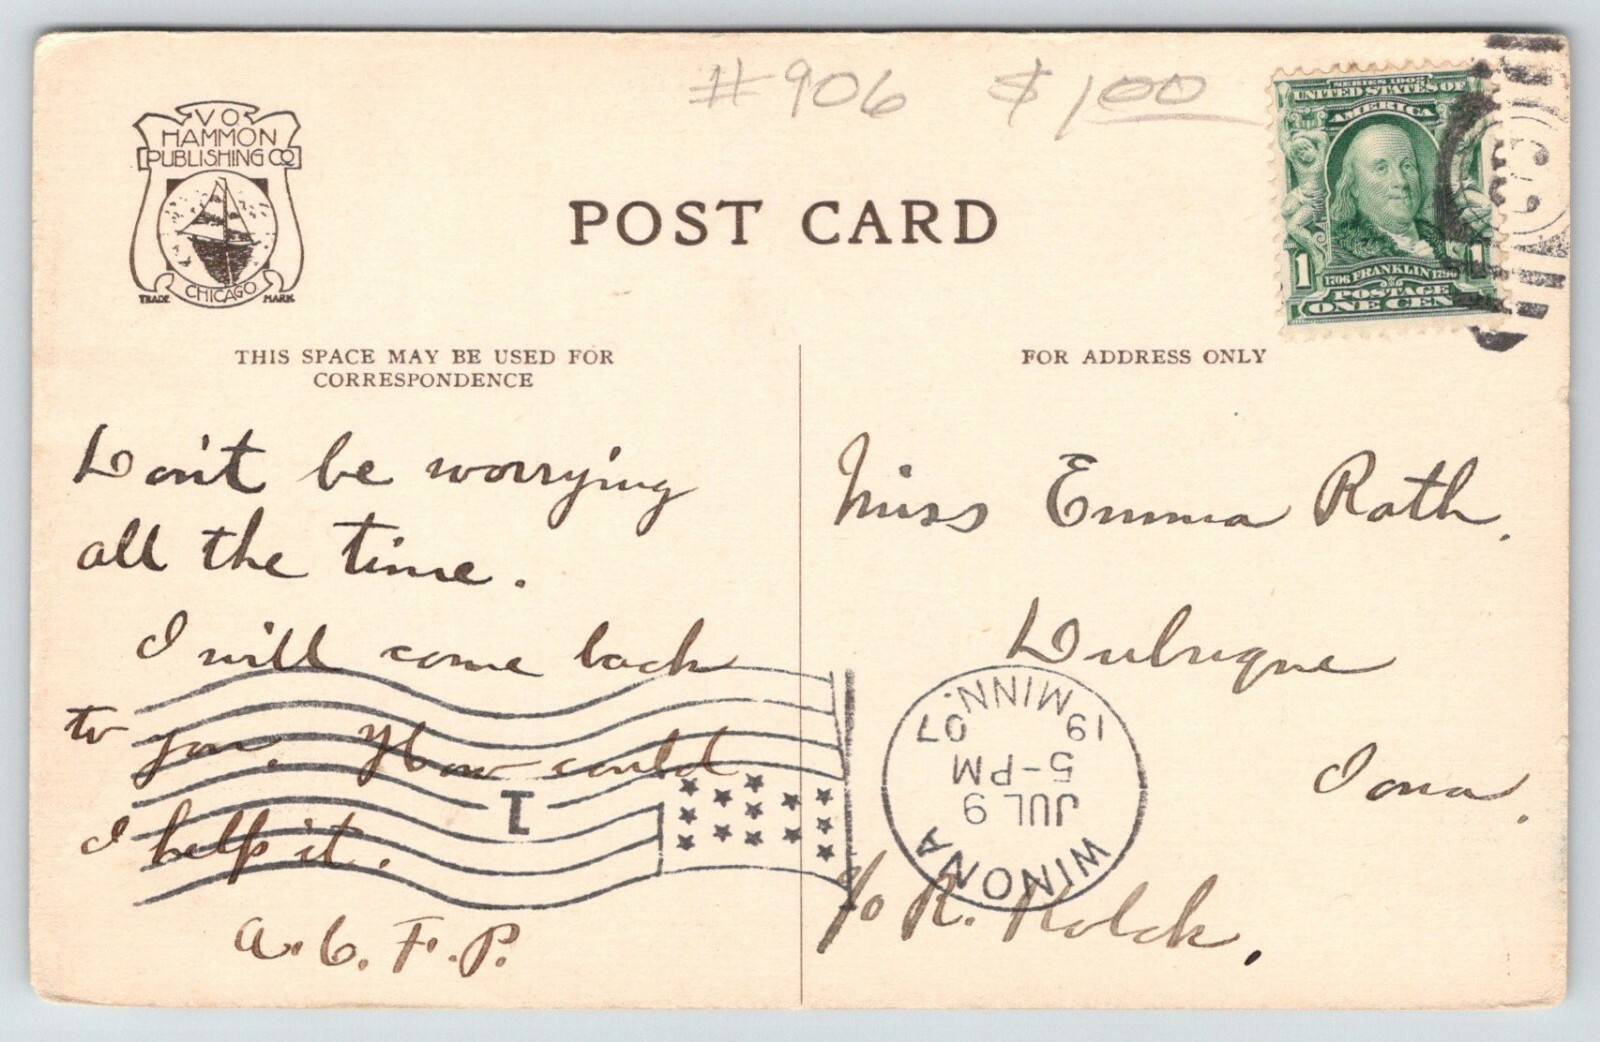 #906 $1.00
V O
HAMMON
PUBLISHING CO
CHICAGO
TRADE MARK
POST CARD
SERIES 1902
UNITED STATES OF
AMERICA
1 1
1706 FRANKLIN 1790
POSTAGE
ONE CEN
THIS SPACE MAY BE USED FOR
CORRESPONDENCE
FOR ADDRESS ONLY
Don't be worrying
all the time.
I will come back
to you. How could
I help it.
A. C. F. P.
1
Miss Emma Rath.
Dubuque
Iowa.
c/o R. Kolck.
WINONA
JUL 9
5-PM
19 07
MINN.